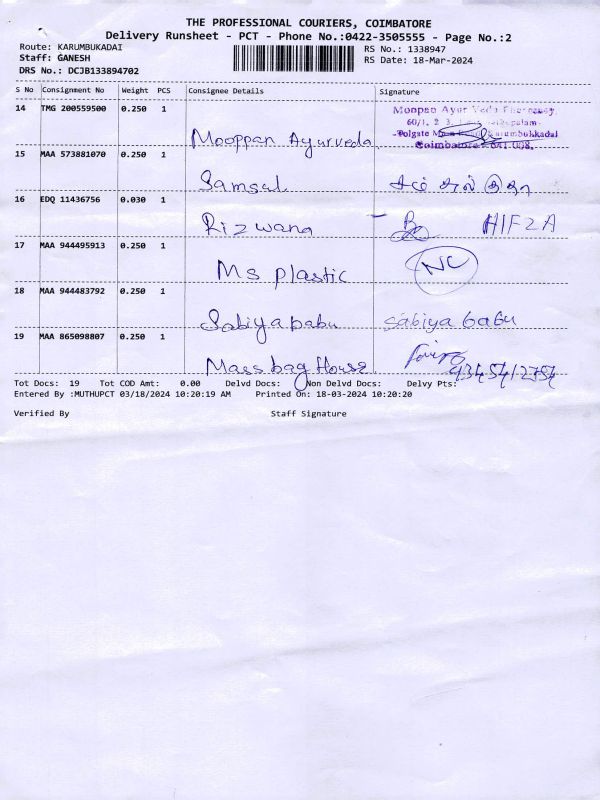 THE PROFESSIONAL COURIERS, COIMBATORE
Delivery Runsheet - PCT - Phone No.:0422-3505555 - Page No.:2
Route: KARUMBUKADAI
RS No.: 1338947
Staff: GANESH
RS Date: 18-Mar-2024
DRS No.: DCJB133894702
S No Consignment No Weight PCS Consignee Details Signature
14 TMG 200559500 0.250 1
Mooppan Ayurveda
Moopan Ayur Veda
60/1, 2 3,
Polgate Main Road Karumbukkadai
Coimbatore - 641 008.
15 MAA 573881070 0.250 1
Samsul
16 EDQ 11436756 0.030 1
Rizwana HIFZA
17 MAA 944495913 0.250 1
Ms plastic NC
18 MAA 944483792 0.250 1
Sabiyababu sabiya babu
19 MAA 865098807 0.250 1
Mass bag House
Tot Docs: 19 Tot COD Amt: 0.00 Delvd Docs: Non Delvd Docs: Delvy Pts:
Entered By :MUTHUPCT 03/18/2024 10:20:19 AM Printed On: 18-03-2024 10:20:20
Verified By Staff Signature